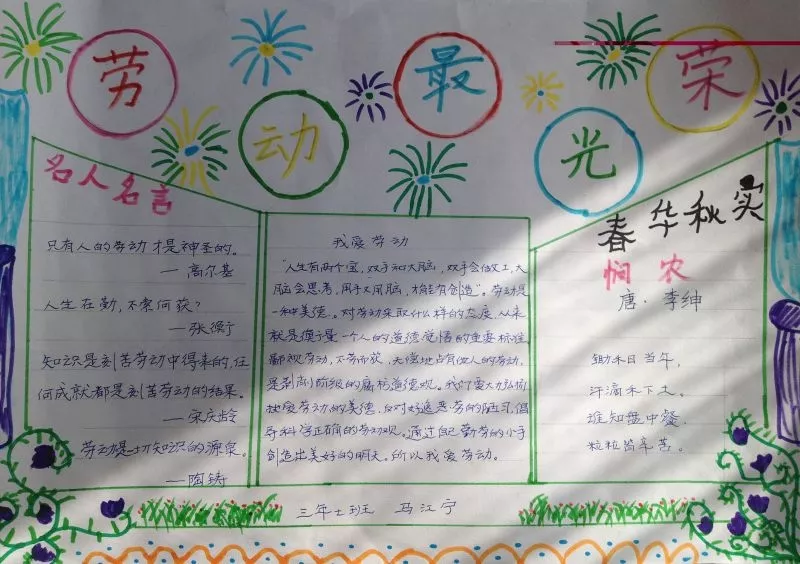 劳动最光荣
名人名言
只有人的劳动才是神圣的。
—高尔基
人生在勤,不索何获?
—张衡
知识是刻苦劳动中得来的,任
何成就都是刻苦劳动的结果。
—宋庆龄
劳动是一切知识的源泉。
—陶铸
我爱劳动
“人生有两个宝,双手和大脑,双手会做工,大
脑会思考,用手又用脑,才能有创造”。劳动是
一种美德。对劳动采取什么样的态度,从来
就是衡量一个人的道德觉悟的重要标准
鄙视劳动,不劳而获,无偿地占有他人的劳动,
是剥削阶级的腐朽道德观。我们要大力弘扬
热爱劳动的美德,反对好逸恶劳的陋习,倡
导科学正确的劳动观。通过自己勤劳的小手
创造出美好的明天。所以我爱劳动。
春华秋实
悯农
唐·李绅
锄禾日当午,
汗滴禾下土。
谁知盘中餐,
粒粒皆辛苦。
三年七班 马江宁